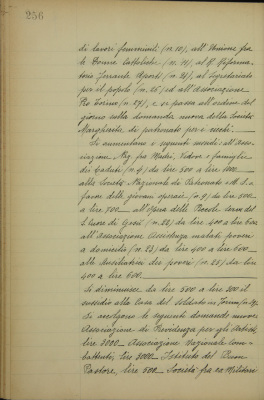 256
di lavori femminili (n. 18), all'Unione fra
le Donne Cattoliche (n. 19), al R. Riforma-
torio Ferrante Aporti (n. 21), al Segretariato
per il popolo (n. 26) ed all'Associazione
Pro Torino (n. 27), e si passa all'ordine del
giorno sulla domanda nuova della Società
Margherita di patronato pei ciechi.
Si aumentano i seguenti sussidi: all'Asso-
ciazione Naz. fra Madri, Vedove e famiglie
di Caduti (n. 4) da lire 500 a lire 1000
alla Società Nazionale di Patronato e M. S. a
favore delle giovani operaie (n. 9) da lire 500
a lire 700 all'Opera delle Piccole
Suore di (n. 22) da lire 400 a lire
all'Associazione Assistenza malati poveri
a domicilio (n. 23) da lire 400 a lire 600
alle Ausiliatrici dei poveri (n. 25) da lire
400 a lire 600.
Si diminuisce da lire 500 a lire 300 il
sussidio alla Casa del Soldato in Torino
Si accolgono le seguenti domande nuove:
Associazione di Previdenza per gli Artisti,
lire 2000 Associazione Nazionale Com-
battenti, lire 3000 Istituto del Buon
Pastore, lire 500 Società fra ex Militari